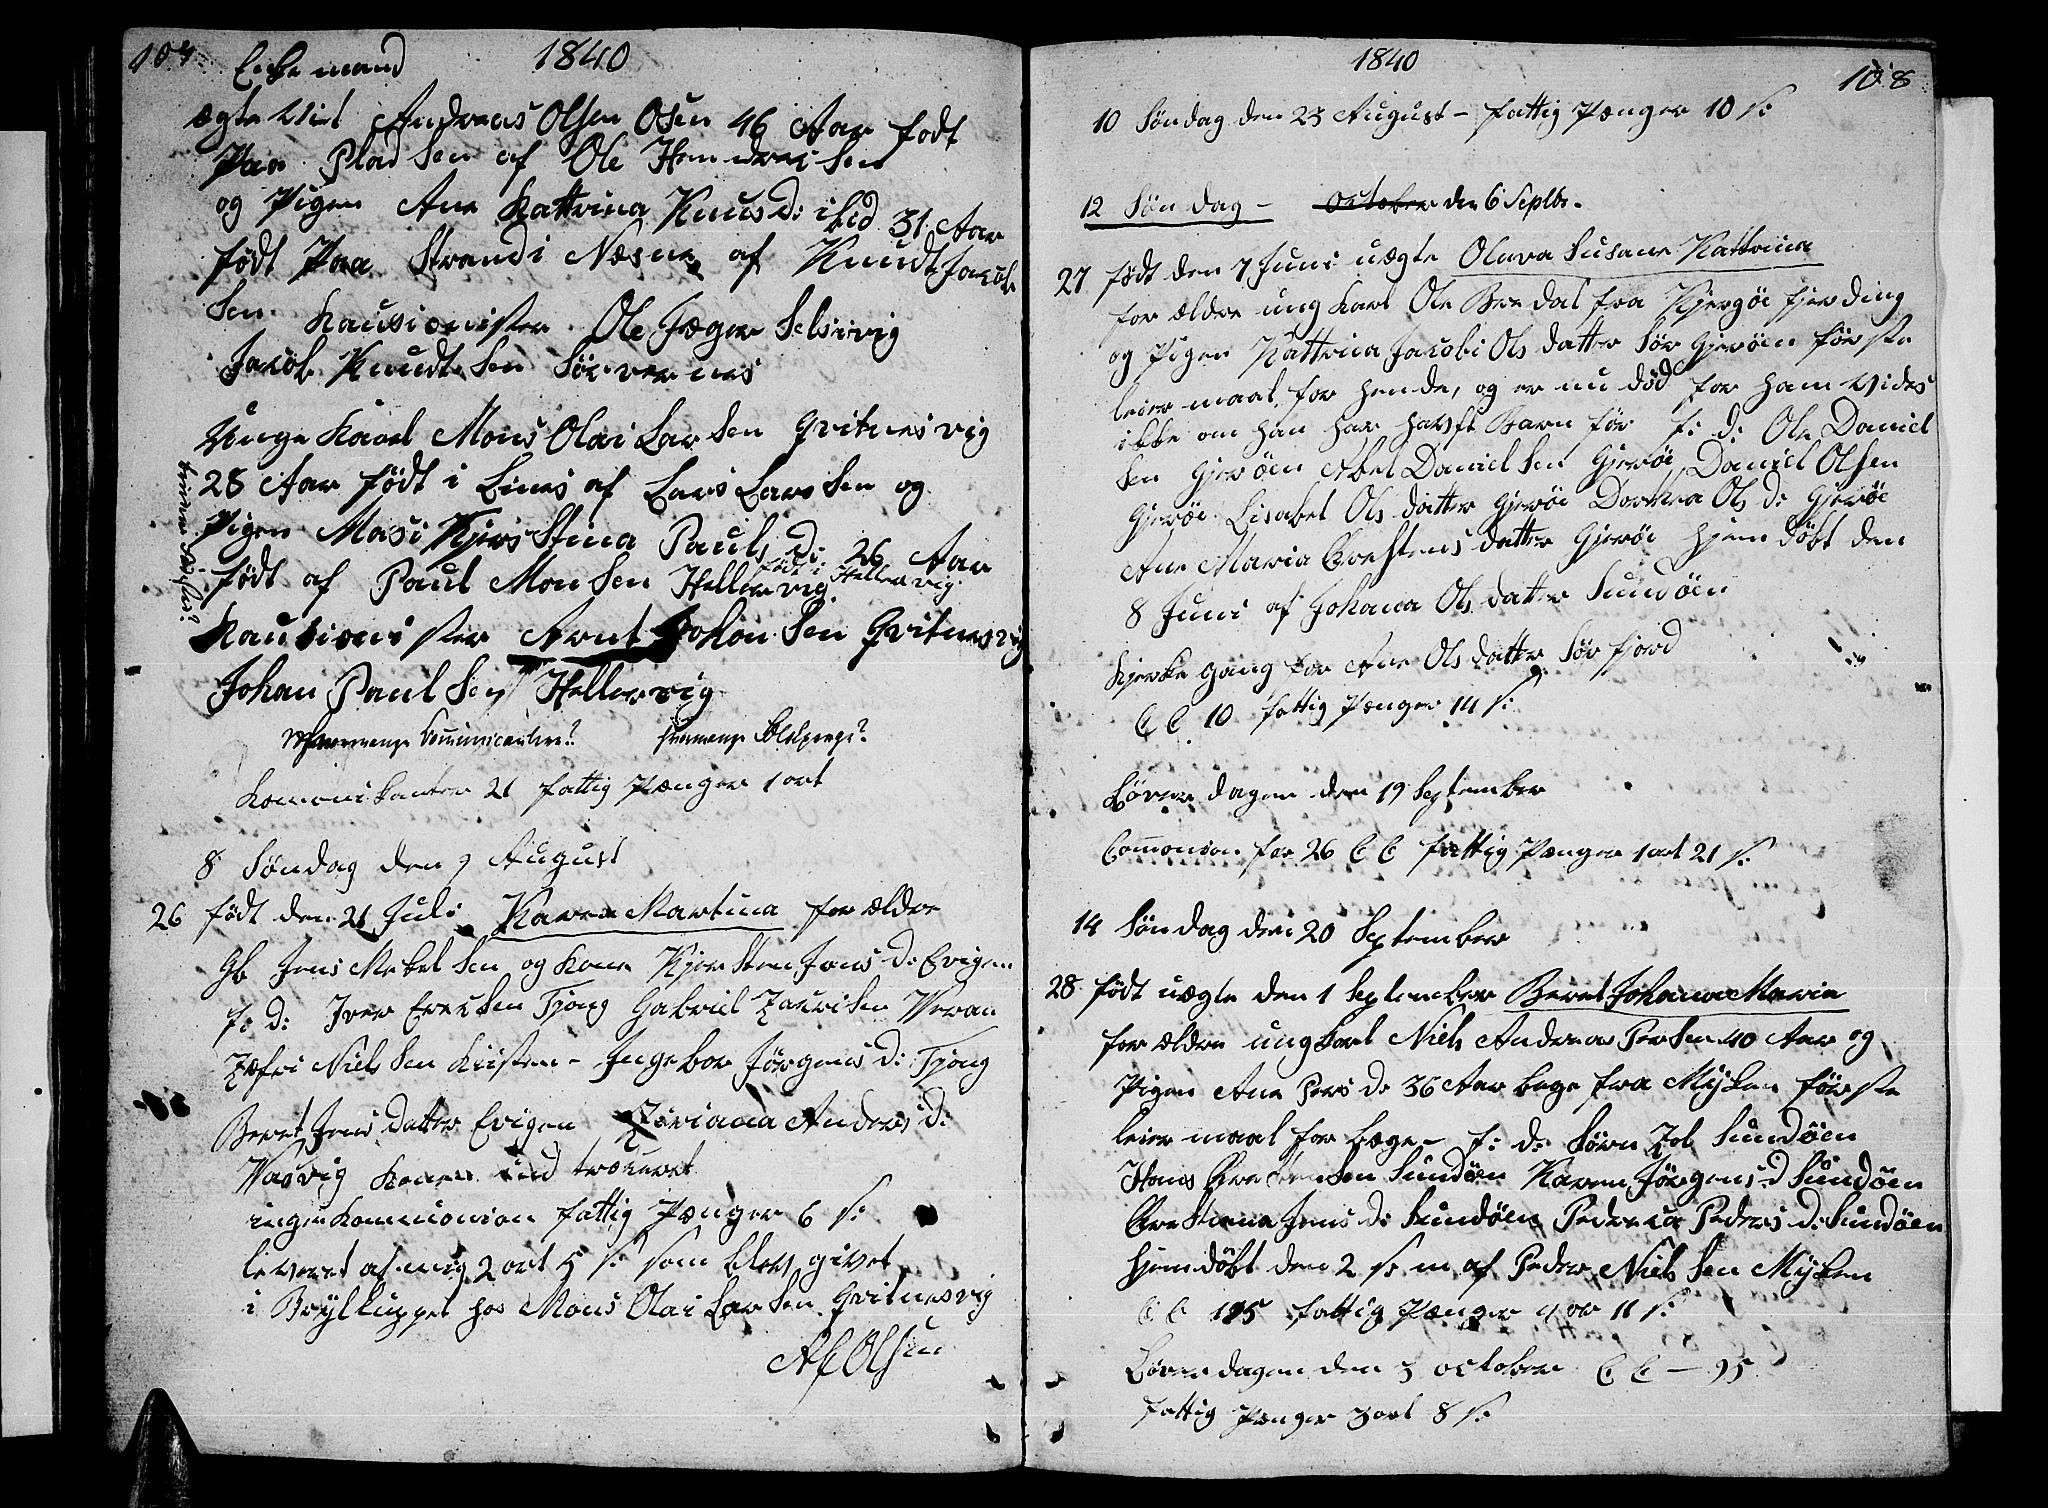 107
1840
Enke mand
ægte viet Andreas Olsen Osen 46 Aar født
Paa Pladsen af Ole Hendrecksen
og Pigen Ane Kattrina Knuds d: ibid 31 Aar
født Paa Strand i Næsne af Knudt Jacob
sen Kausionister Ole Jæger Selsivig
Jacob Knudtsen Sörvernes
Unge Karel Mons Olai Larsen Qvitnesvig
28 Aar født i Lines af Lars Larsen og
Pigen Masi Kjerstina Pauls d: 26 Aar
født i Hellervig
født af Paul Monsen Hellervig
Kausionister Arnt Johansen Qvitnesvig
Johan Paulsen Hellervig
Communicantere? Blodpenge?
Komonikanter 21 fattig Pænger 1 ort
8 Söndag den 9 August
26 født den 21 Juli Karen Martina forældre
Gb Jens Mekelsen og Kone Kjersten Jons d: Evigen
f: d: Iver Ereksen Tjong Gabriel Zakrisen Veran
Zefri Nielsen Kirsten - Ingebor Jörgens d: Tjong
Beret Jens datter Evigen Ziviana Anders d:
Vaavig Konen ind trökeret
ingen Kommonion fattig Pænger 6 s:
leveret af mig 2 ort 5 s: som blev givet
i Brylluppet hos Mons Olai Larsen Qvitnesvig
A C Olsen
1840
108
10 Söndag den 23 August - fattig Pænger 10 s:
12 Söndag - October den 6 Septbr.
27 født den 7 Juni uægte Olava Susane Kattrina
forældre ung Karl Ole Bredal fra Kjergöe fjerding
og Pigen Kattrina Jacobi Ols datter Sör Gjeröen förste
leiermaal for hende, og er nu död for ham vides
ikke om han har havft Barn för f: d: Ole Daniel
sen Gjeröen Abel Danielsen Gjeröe Daniel Olsen
Gjeröe Lisabet Ols datter Gjeröe Dorthea Ols d: Gjeröe
Ane Maria Crestens datter Gjeröe hjem döbt den
8 Juni af Johana Ols datter Sundöen
Kjerke gang for Ane Ols datter Sörfjord
C C 10 fattig Pænger 14 s:
Löver dagen den 19 September
Comonion for 26 C C fattig Pænger 1 ort 21 s:
14 Söndag den 20 September
28 født uægte den 1 September Beret Johana Maria
forældre ungkarl Niels Andreas Persen 40 Aar og
Pigen Ane Pers d: 36 Aar bege fra Myken förste
leiermaal for bege - f: d: Sörn Zol Sundöen
Hans Crestensen Sundöen Karen Jörgens d Sundöen
Crestiana Jens d: Sundöen Pedrica Peders d: Sundöen
hjemdöbt den 2 s: m af Peder Nielsen Myken
C C 115 fattig Pænger 4 or 11 s:
Löverdagen den 3 october C C - 95
fattig Pænger 3 ort 8 s: